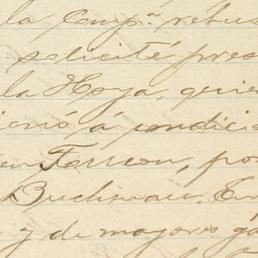 la Comp.ª rehus
solicité pres
la Hoya, quie
ionó á condicio
en Torreon, po
Buchman. En
y de mayores ga